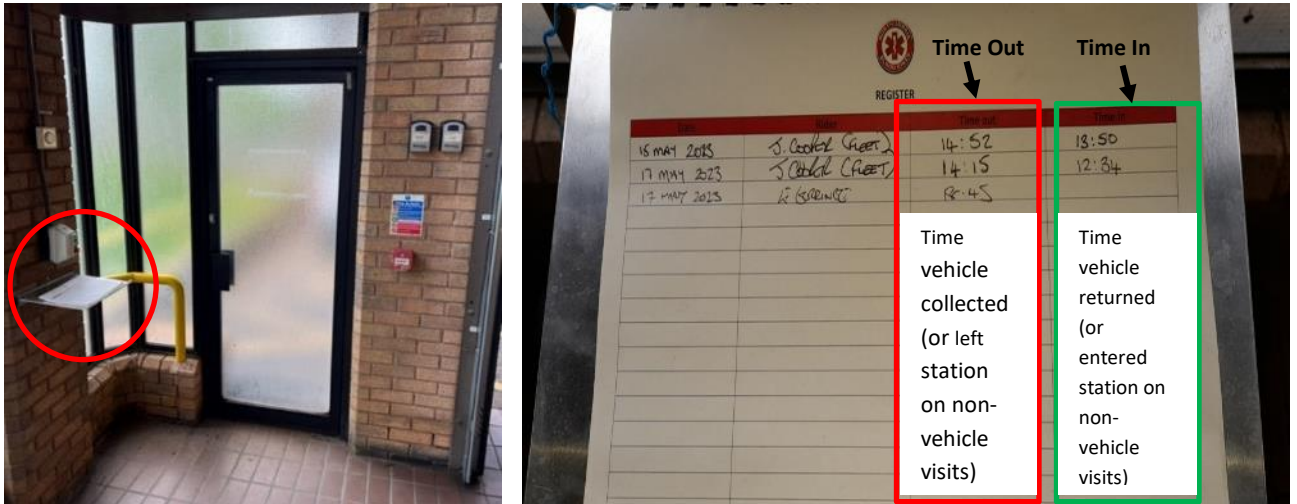 Time Out Time In
REGISTER
Date Rider Time out Time in
15 MAY 2023 J. COOPER (FLEET) 14:52 13:50
17 MAY 2023 J COOPER (FLEET) 14:15 12:34
17 MAY 2023
Time
vehicle
collected
(or left
station
on non-
vehicle
visits)
Time
vehicle
returned
(or
entered
station on
non-
vehicle
visits)